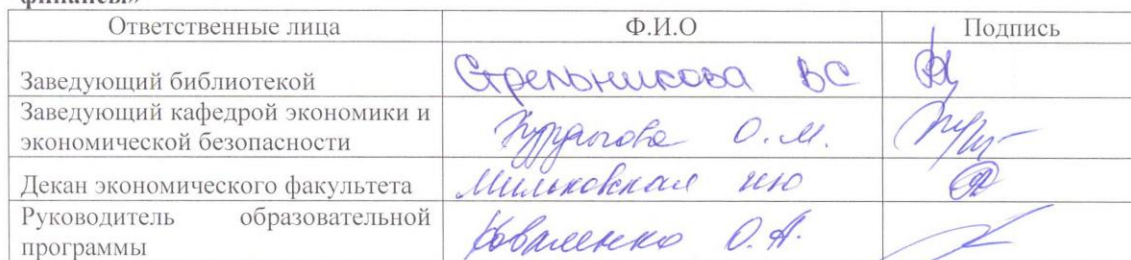 финансы»
Ответственные лица Ф.И.О Подпись
Заведующий библиотекой Стрельникова ВС
Заведующий кафедрой экономики и
экономической безопасности О.М.
Декан экономического факультета Мильковская ИЮ
Руководитель образовательной
программы Коваленко О.А.